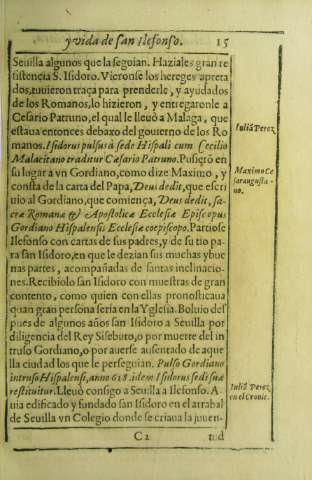 y vida de san Ilefonso. 15
Seuilla algunos que la seguian. Haziales gran re
sistencia S. Isidoro. Vieronse los hereges apreta
dos, tuuieron traça para prenderle, y ayudados
de los Romanos, lo hizieron, y entregaronle a
Cesario Patruno, el qual le lleuò a Malaga, que
estaua entonces debaxo del gouierno de los Ro
manos. Isidorus pulsus à sede Hispali cum Cecilio
Malacitano traditur Cæsario Patruno. Pusierõ en
su lugar a vn Gordiano, como dize Maximo, y
consta de la carta del Papa, Deus dedit, que escri
uio al Gordiano, que comiença, Deus dedit, sa-
cræ Romanæ & Apostolicæ Ecclesiæ Episcopus
Gordiano Hispalensis Ecclesiæ coepiscopo. Partiose
Ilefonso con cartas de sus padres, y de su tio pa
ra san Isidoro, en que le dezian sus muchas y bue
nas partes, acompañadas de santas inclinacio-
nes. Recibiolo san Isidoro con muestras de gran
contento, como quien con ellas pronosticaua
quan gran persona seria en la Yglesia. Boluio des
pues de algunos años san Isidoro a Seuilla por
diligencia del Rey Sisebuto, o por muerte del in
truso Gordiano, o por auerse ausentado de aque
lla ciudad los que le perseguian. Pulso Gordiano
intruso Hispalensi, anno 618. idem Isidorus sedi suæ
restituitur. Lleuò consigo a Seuilla a Ilefonso. A
uia edificado y fundado san Isidoro en el arrabal
de Seuilla vn Colegio donde se criaua la juuen-
C 2 tud
Iuliã Perez
Maximo Ce
saraugusta-
no.
Iuliã Perez
en el Cronic.